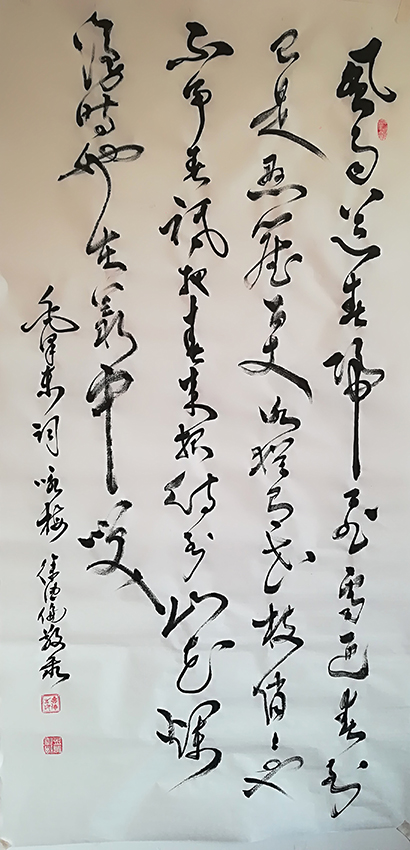 風雨送春歸飛雪迎春到
已是懸崖百丈冰猶有花枝俏〻也
不争春祇把春來报待到山花爛
漫時她在叢中笑
毛澤東詞 咏梅 敬录